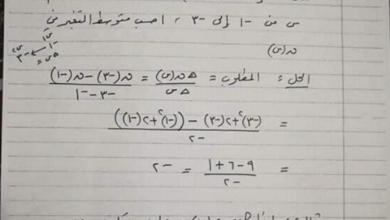 س من -١ إلى -٣ ، احسب متوسط التغير في
د(س)
س١ س٢
-١ ← -٣
الحل = المطلوب = Δد(س)/Δس = (د(-٣) - د(-١))/(-٣ - -١)
= ((-٣)²+٢(-٣) - ((-١)²+٢(-١)))/-٢
= (٩-٦+١)/-٢ = -٢